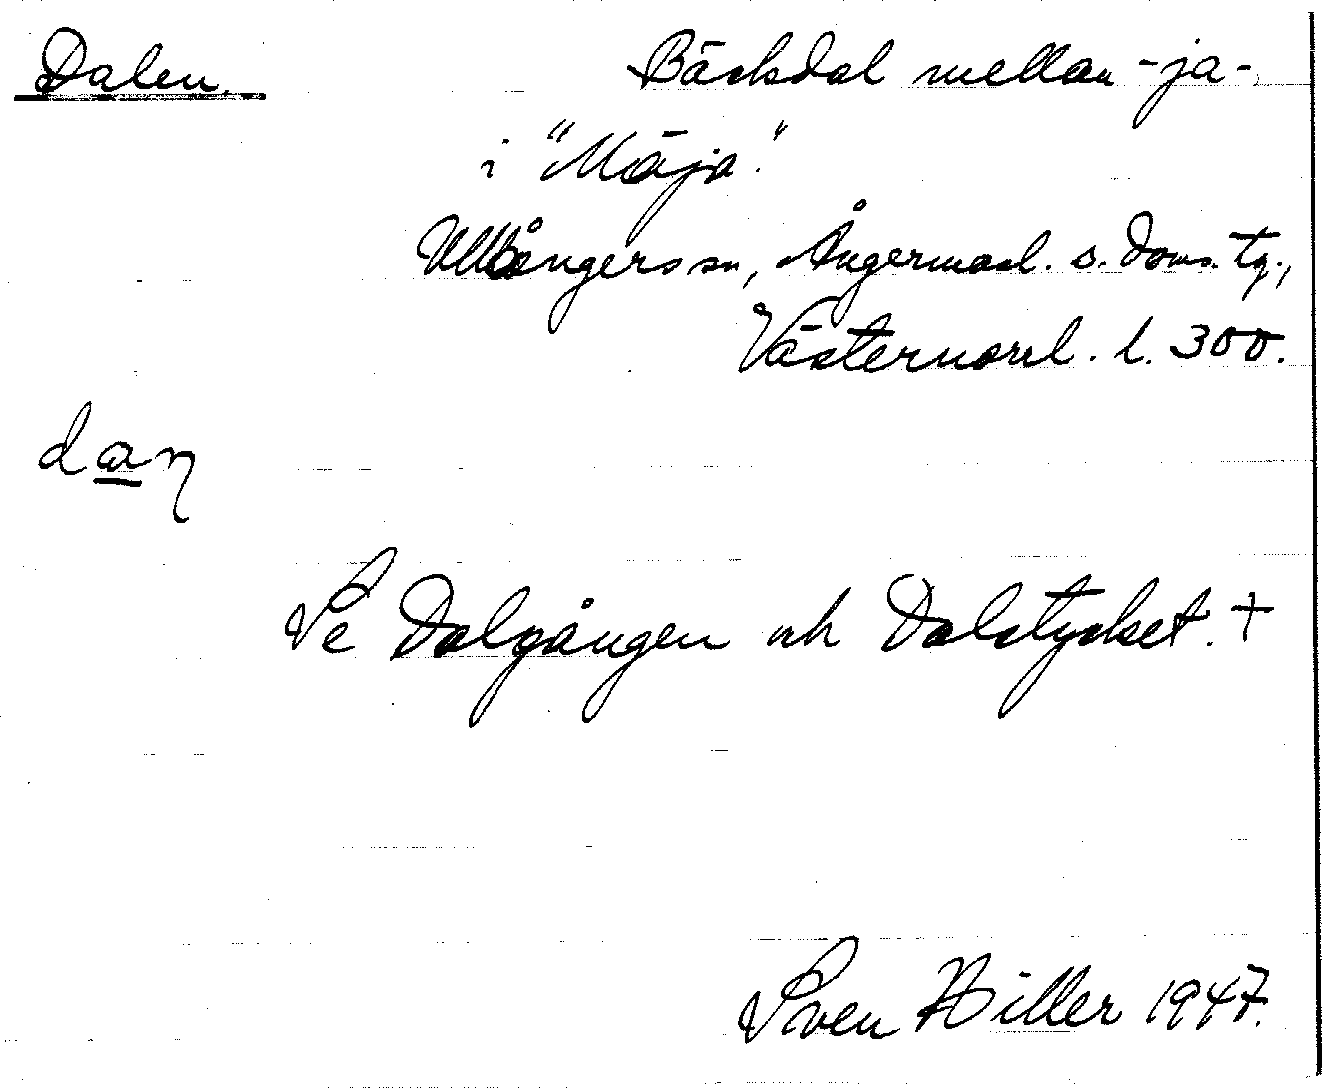 Dalen. Bäckdal mellan -ja-
i "Mäja".
Ullångers sn, Ångermanl. s. doms. tg.,
Västernorrl. l. 300.
dan
Se Dalgången och Dalstycket. +
Sven Hiller 1947.